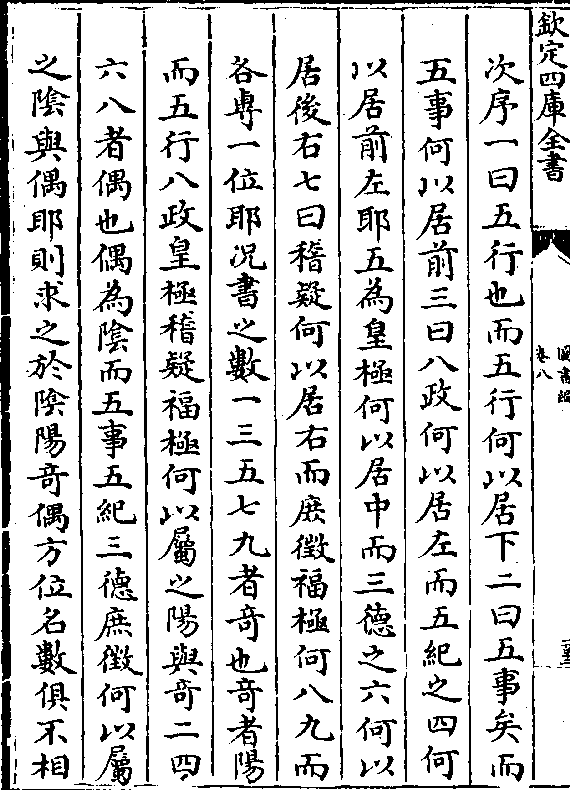 欽定四庫全書
圖書編
卷八
次序一曰五行也而五行何以居下二曰五事矣而
五事何以居前三曰八政何以居左而五紀之四何
以居前左耶五為皇極何以居中而三德之六何以
居後右七曰稽疑何以居右而庶徵福極何八九而
各專一位耶况書之數一三五七九者奇也奇者陽
而五行八政皇極稽疑福極何以屬之陽與奇二四
六八者偶也偶為陰而五事五紀三德庶徵何以屬
之陰與偶耶則求之於陰陽竒偶方位名數俱不相